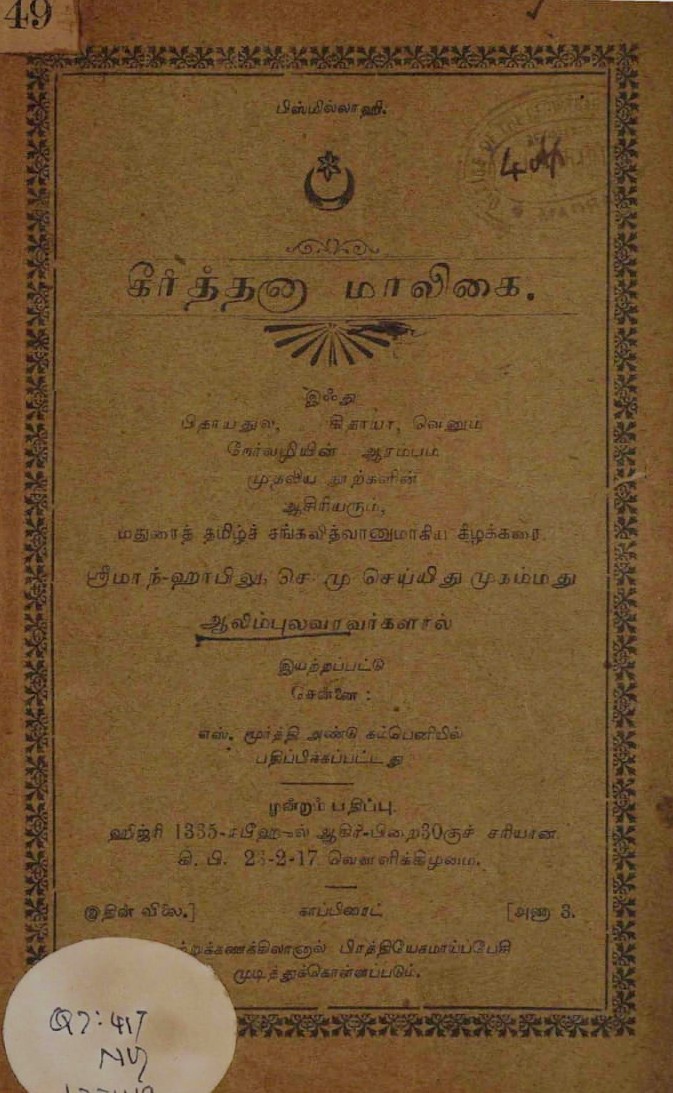 49
பிஸ்மில்லாஹி.
கீர்த்தனா மாலிகை.
இஃது
பிதாயதுல், கிதாயா, வெனும்
நேர்வழியின் ஆரம்பம்
முதலிய நூற்களின்
ஆசிரியரும்,
மதுரைத் தமிழ்ச் சங்கவித்வானுமாகிய கீழக்கரை
ஸ்ரீமாந்-ஹாபிலு, செ- மு- செய்யிது முகம்மது
ஆலிம்புலவரவர்களால்
இயற்றப்பட்டு
சென்னை :
எஸ். மூர்த்தி அண்டு கம்பெனியில்
பதிப்பிக்கப்பட்டது
மூன்றும் பதிப்பு.
ஹிஜ்ரி 1335-ரபீஹுல் ஆகிர்-பிறை30குச் சரியான
கி. பி. 23-2-17 வெள்ளிக்கிழமை.
இதின் விலை.] காப்பிரைட் [அணா 3.
பிரத்தியேகமாய்ப்பேசி
முடித்துக்கொள்ளப்படும்.
Q7:417